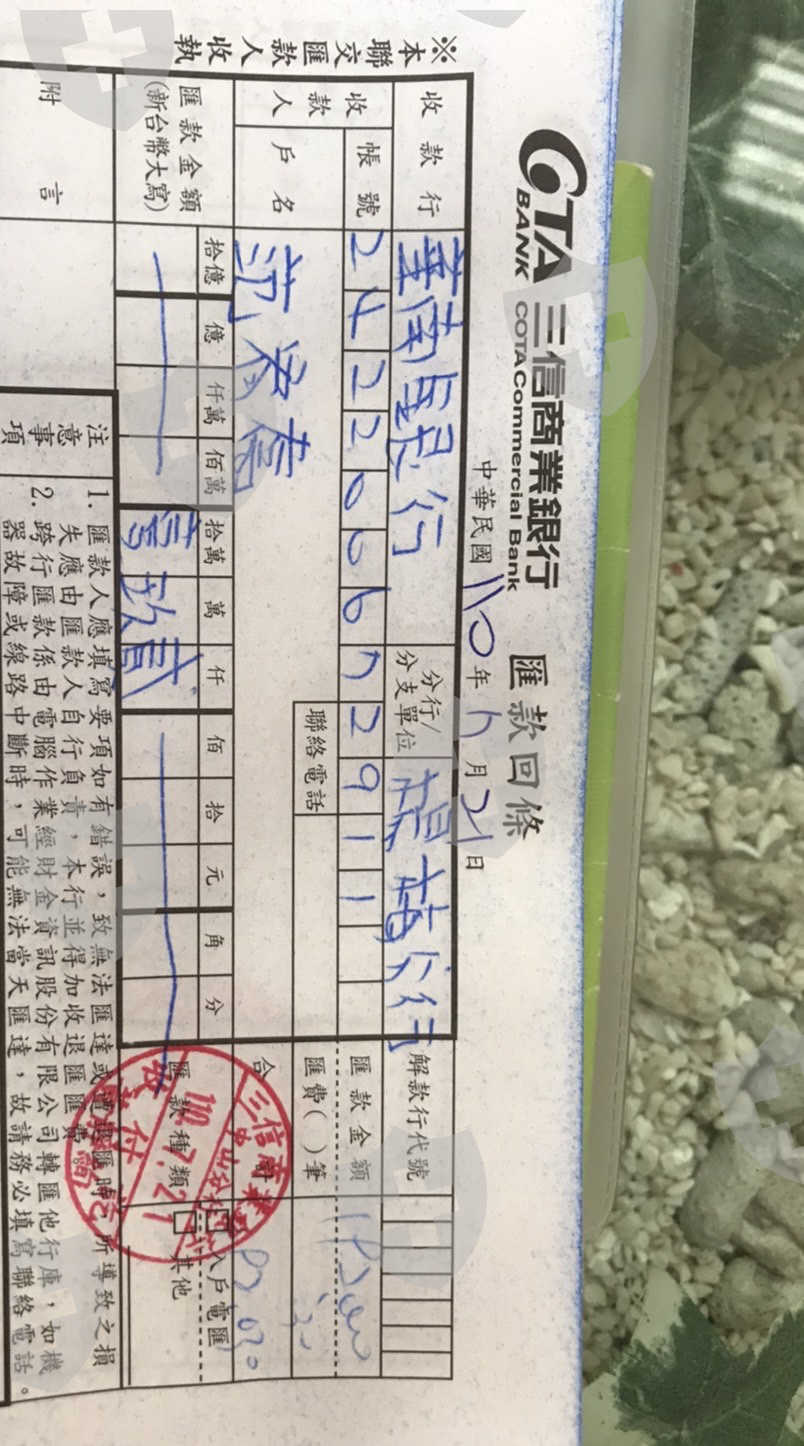 COTA 三信商業銀行 匯款回條
BANK COTA Commercial Bank
中華民國110年 月21日
※本聯交匯款人收執
收款行 華南銀行 分行/分支單位 分行 解款行代號
收款人
帳號 2422006 2911 匯款金額
聯絡電話 匯費( )筆
戶名 合
匯款金額(新台幣大寫) 拾億 億 仟萬 佰萬 拾萬 萬 仟 佰 拾 元 角 分 匯款種類 入戶電匯
其他
三信商業
110.7.21
附言
注意事項
1. 匯款人應填寫要項如有錯誤,致無法匯達或 匯時 所導致之損
失應由匯款人自行負責,本行並得加收退匯匯費
2. 跨行匯款係由電腦作業經財金資訊股份有限公司轉匯他行庫,如機
器故障或線路中斷時,可能無法當天匯達,故請務必填寫聯絡電話。